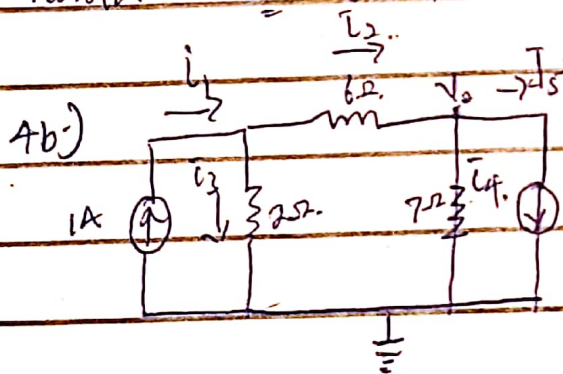 I2..
i1
6Ω.
Vo
→I5
4b·)
i3
I4.
1A
2Ω.
7Ω